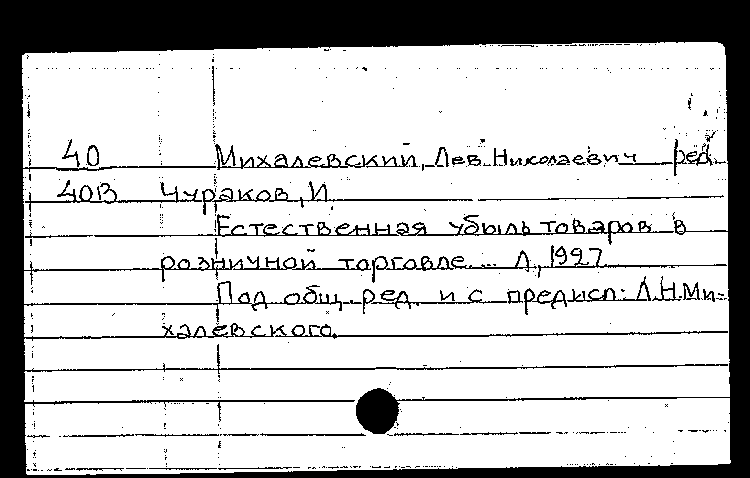 40 Михалевский, Лев Николаевич ред.
40В Чураков, И.
Естественная убыль товаров в
розничной торговле... Л., 1927
Под общ. ред. и с предисл: Л.Н.Ми-
халевского.